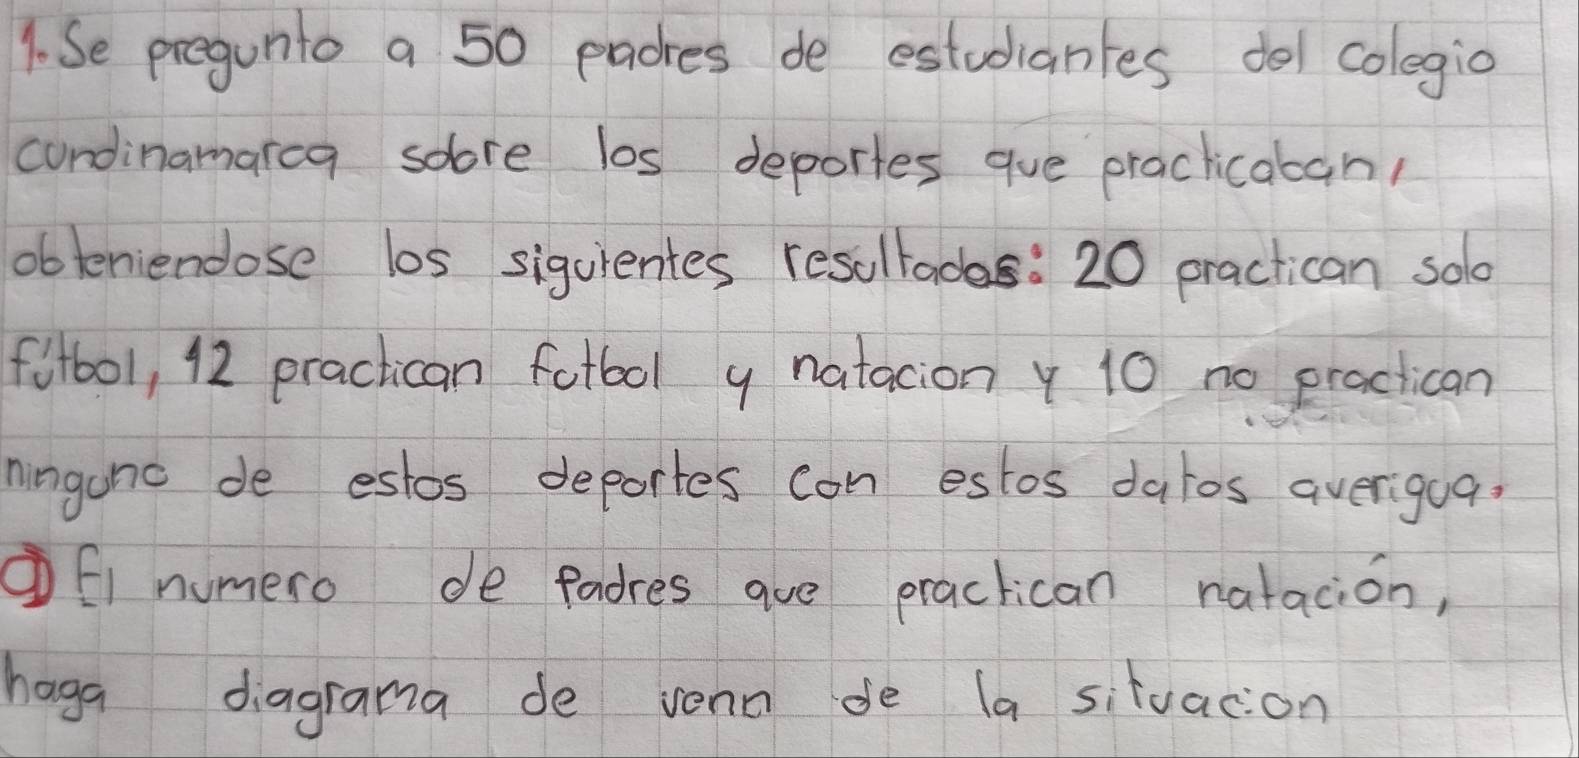 1. Se pregunto a 50 padres de estudiantes del colegio
cundinamarca sobre los deportes que practicaban,
obteniendose los siguientes resultados: 20 practican solo
fútbol, 12 practican futbol y natacion y 10 no practican
ninguno de estos deportes con estos datos averigua.
a) El numero de Padres que practican natación,
haga diagrama de venn de la situacion